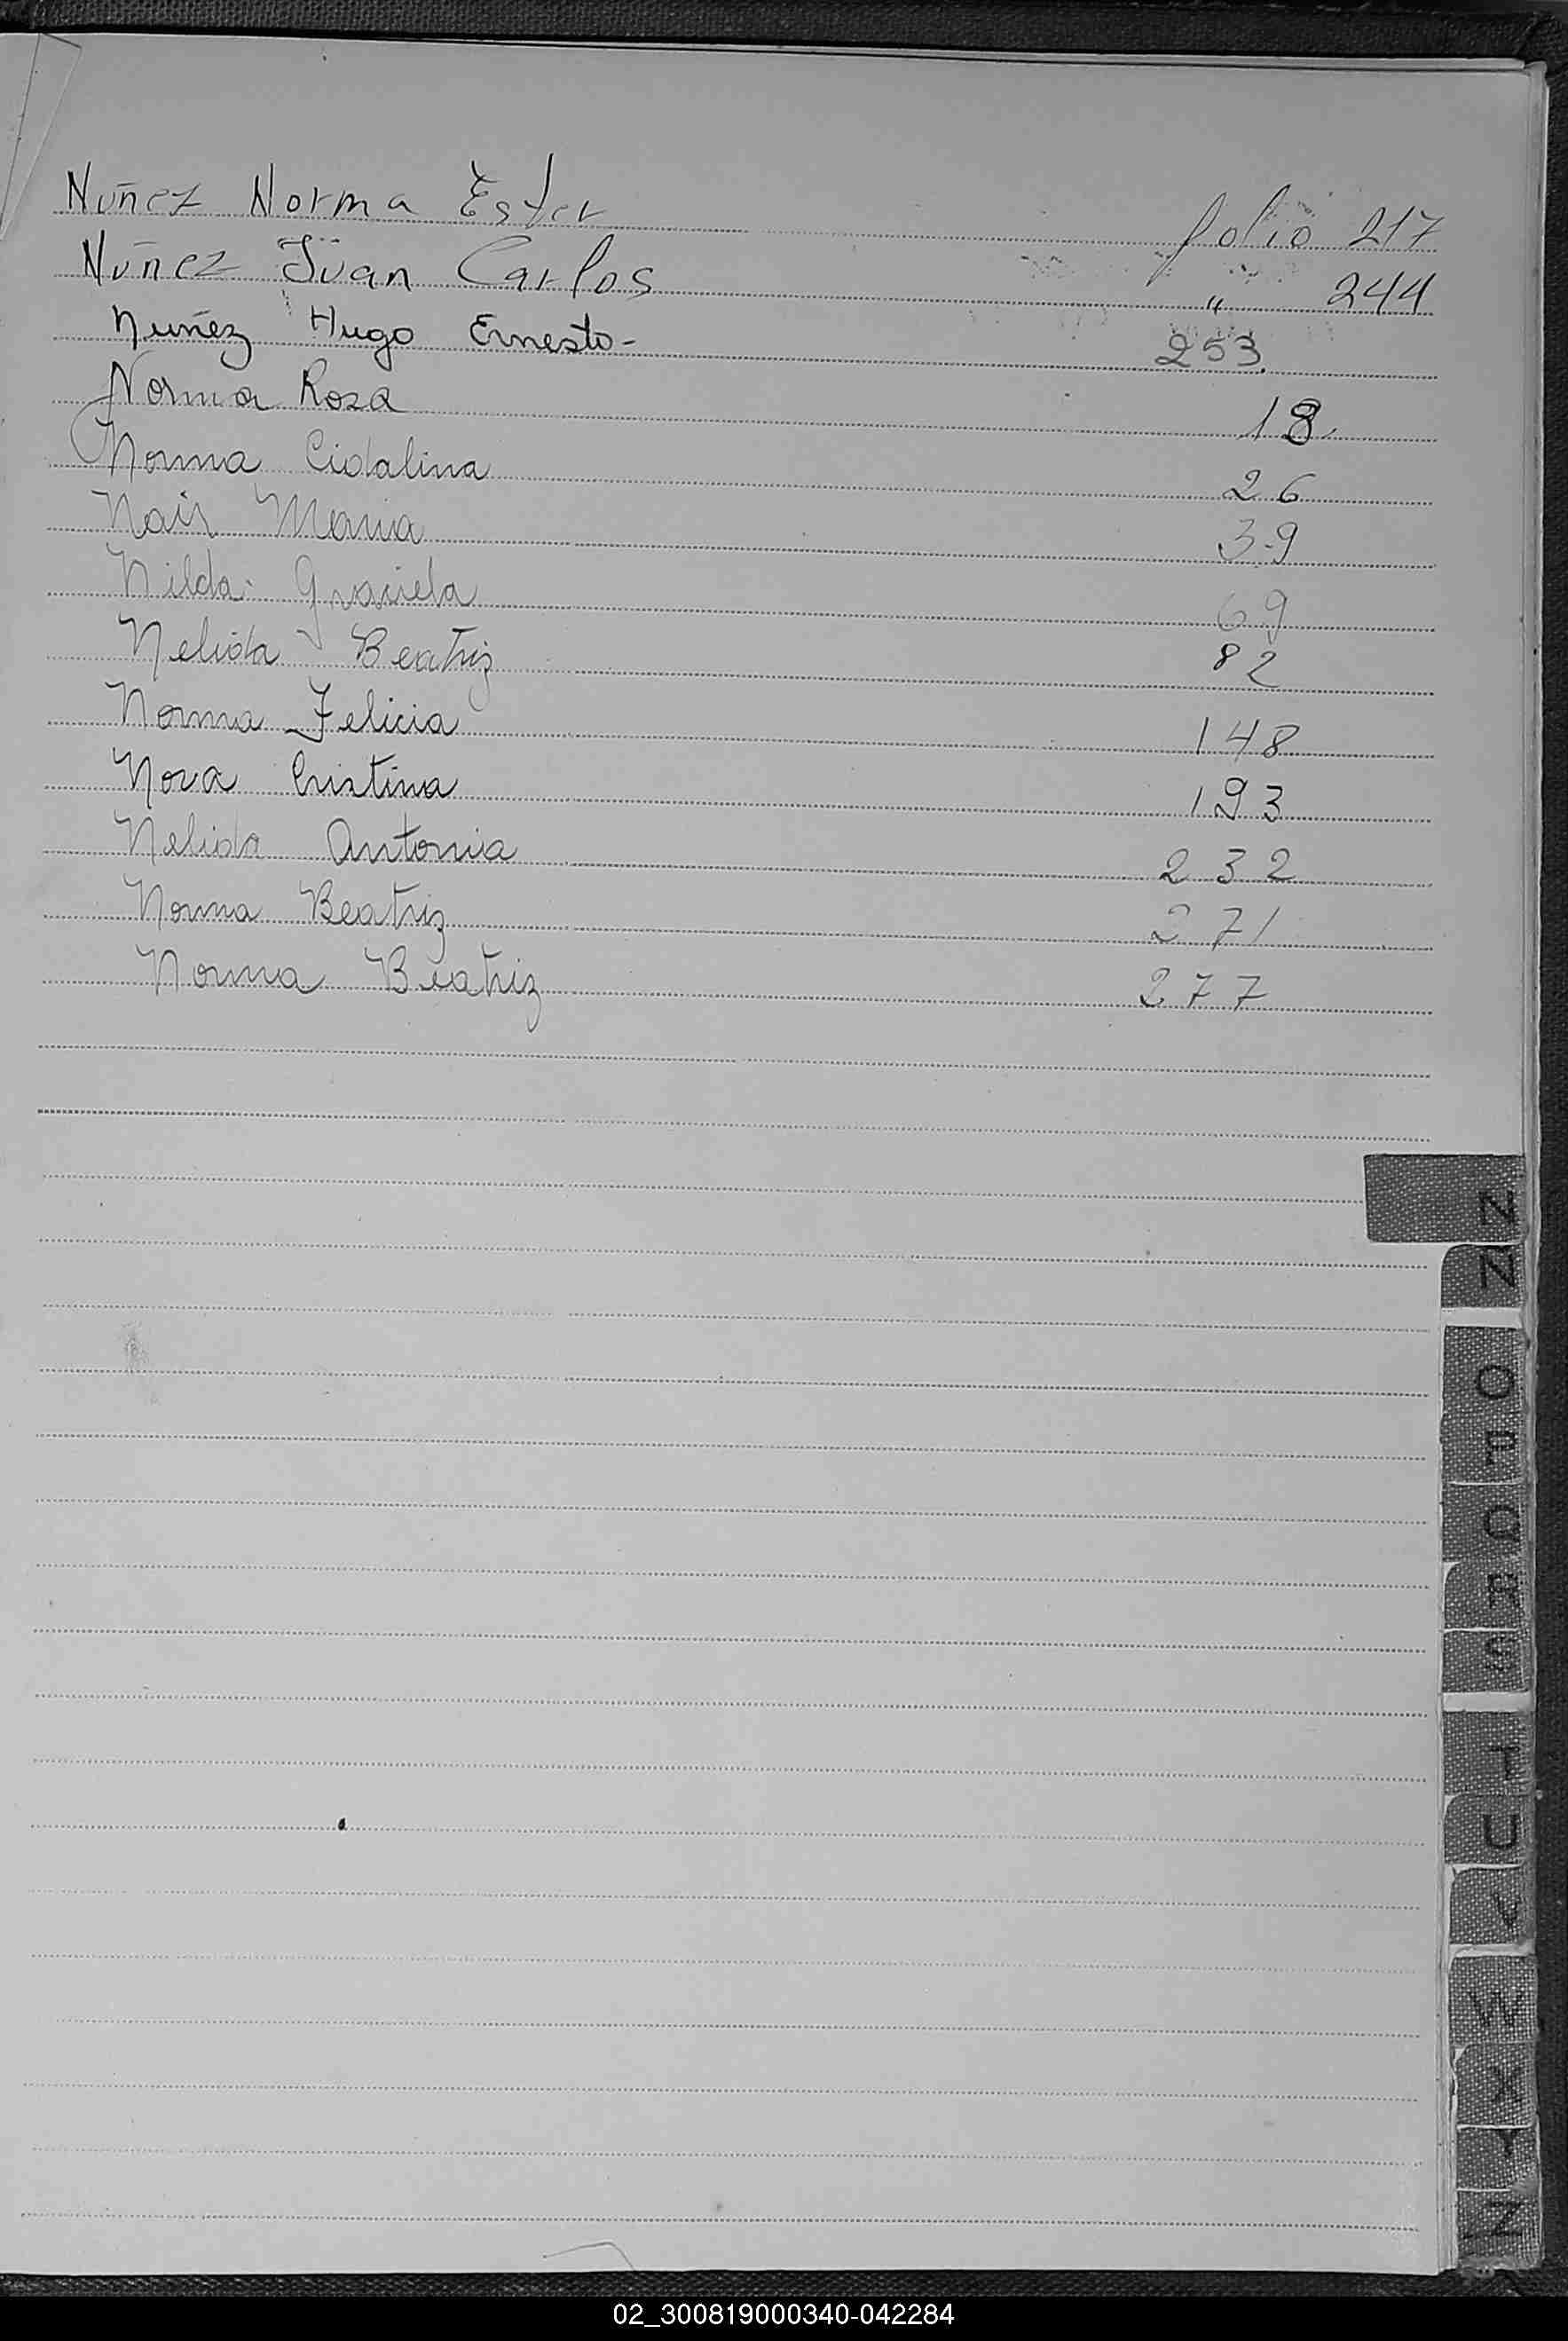 Nuñez Norma Ester folio 217
Nuñez Juan Carlos " 244
Nuñez Hugo Ernesto - 253.
Norma Rosa 18
Norma Cidalina 26
Nair Maria 39
Nilda Graciela 69
Nelida Beatriz 82
Norma Felicia 148
Nora Cristina 193
Nelida Antonia 232
Norma Beatriz 271
Norma Beatriz 277
N
Ñ
O
P
Q
R
S
T
U
V
W
X
Y
Z
02_300819000340-042284